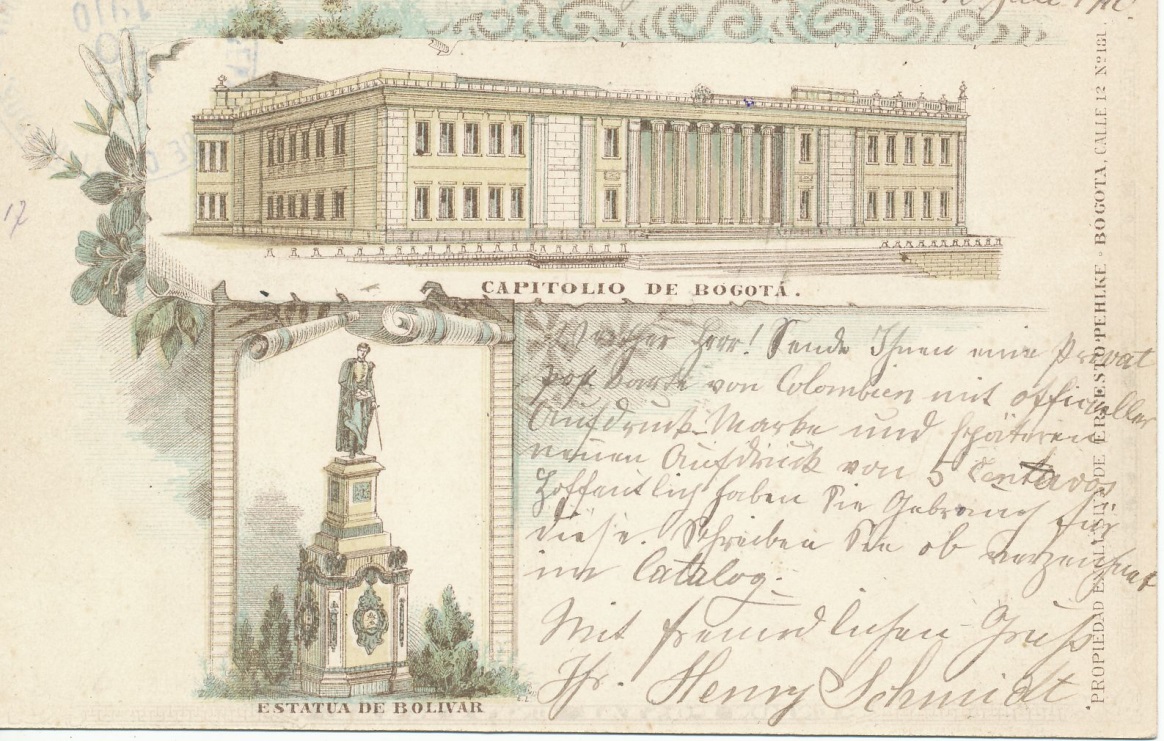 CAPITOLIO DE BOGOTÁ.
Werther Herr! Sende Ihnen eine Privat
post Karte von Colombien mit officieller
Aufdruck-Marke und späteren
neuen Aufdruck von 5 Centavos
Hoffentlich haben Sie Gebrauch für
diese. Schreiben Sie ob verzeichnet
im Catalog.
Mit freundlichen Gruß
Ihr. Henry Schmidt
ESTATUA DE BOLIVAR
PROPIEDAD EXCLUSIVA DE ERNESTO PEHLKE - BOGOTA, CALLE 12 Nº 181.
17